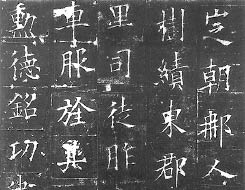 定朝那人
樹績東郡
里司徒胙
車服旌其
勳德銘功